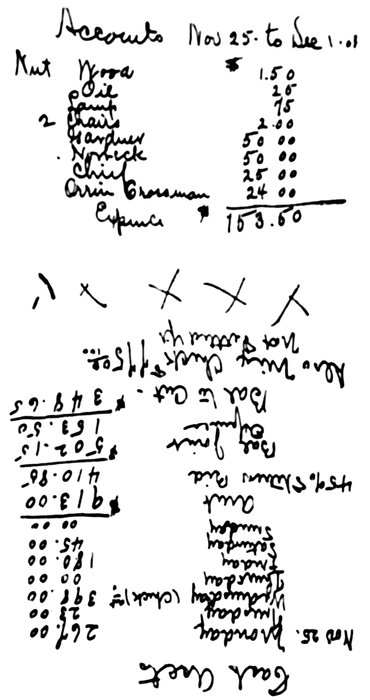 Accounts Nov 25. to Dec 1. 01
Nut Wood $ 1.50
Oil 25
Lamp 75
2 Chairs 2.00
Gardner 50 00
50 00
Chief 25 00
Orrin Crossman 24 00
Expence $ 153.50
Cash Acct
Nov 25. Monday 267.00
Tuesday 23 00
Wednesday (Check) 398.00
Thursday 00 00
Friday 180.00
Saturday 45.00
Sunday 00 00
Amt $ 913.00
45% Paid 410.85
Bal Joint $ 502.15
153.50
Bal to Cut. $ 348.65
Also Check
Not Settled up